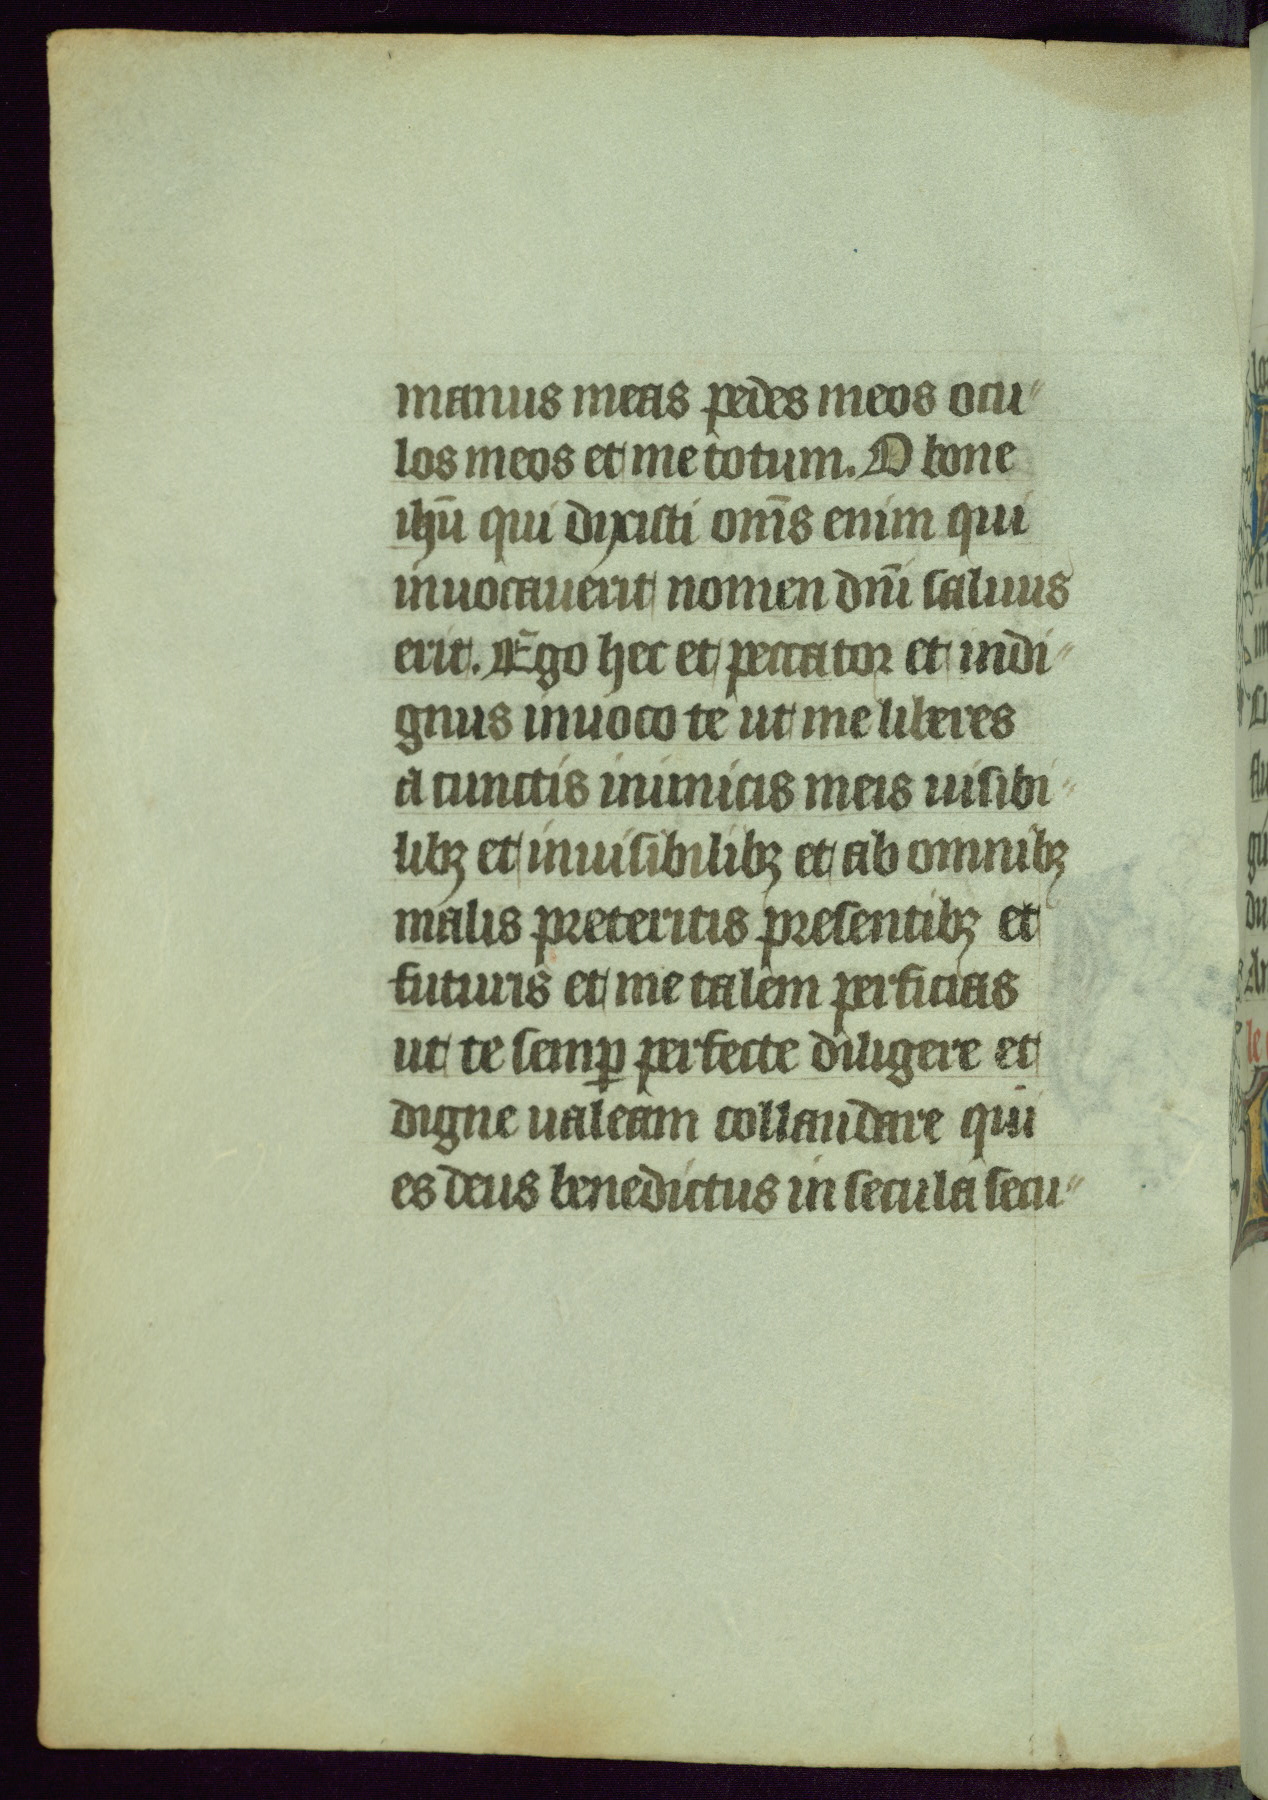 manus meas pedes meos ocu〃
los meos et me totum. O bone
ihū qui dixisti om̄s enim qui
inuocauerit nomen dn̄i saluus
erit. Ego hec et peccator et indi〃
gnus inuoco te ut me liberes
a cunctis inimicis meis uisibi〃
libꝫ et inuisibilibꝫ et ab omnibꝫ
malis preteritis presentibꝫ et
futuris et me talem perficias
ut te semꝑ perfecte diligere et
digne ualeam collaudare qui
es deus benedictus in secula secu〃